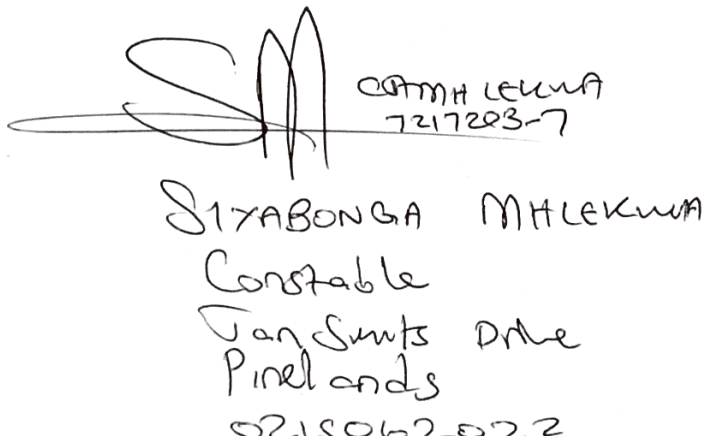 SM
MHLEKWA
7217203-7
SIYABONGA MHLEKWA
Constable
Jan Smuts Drive
Pinelands